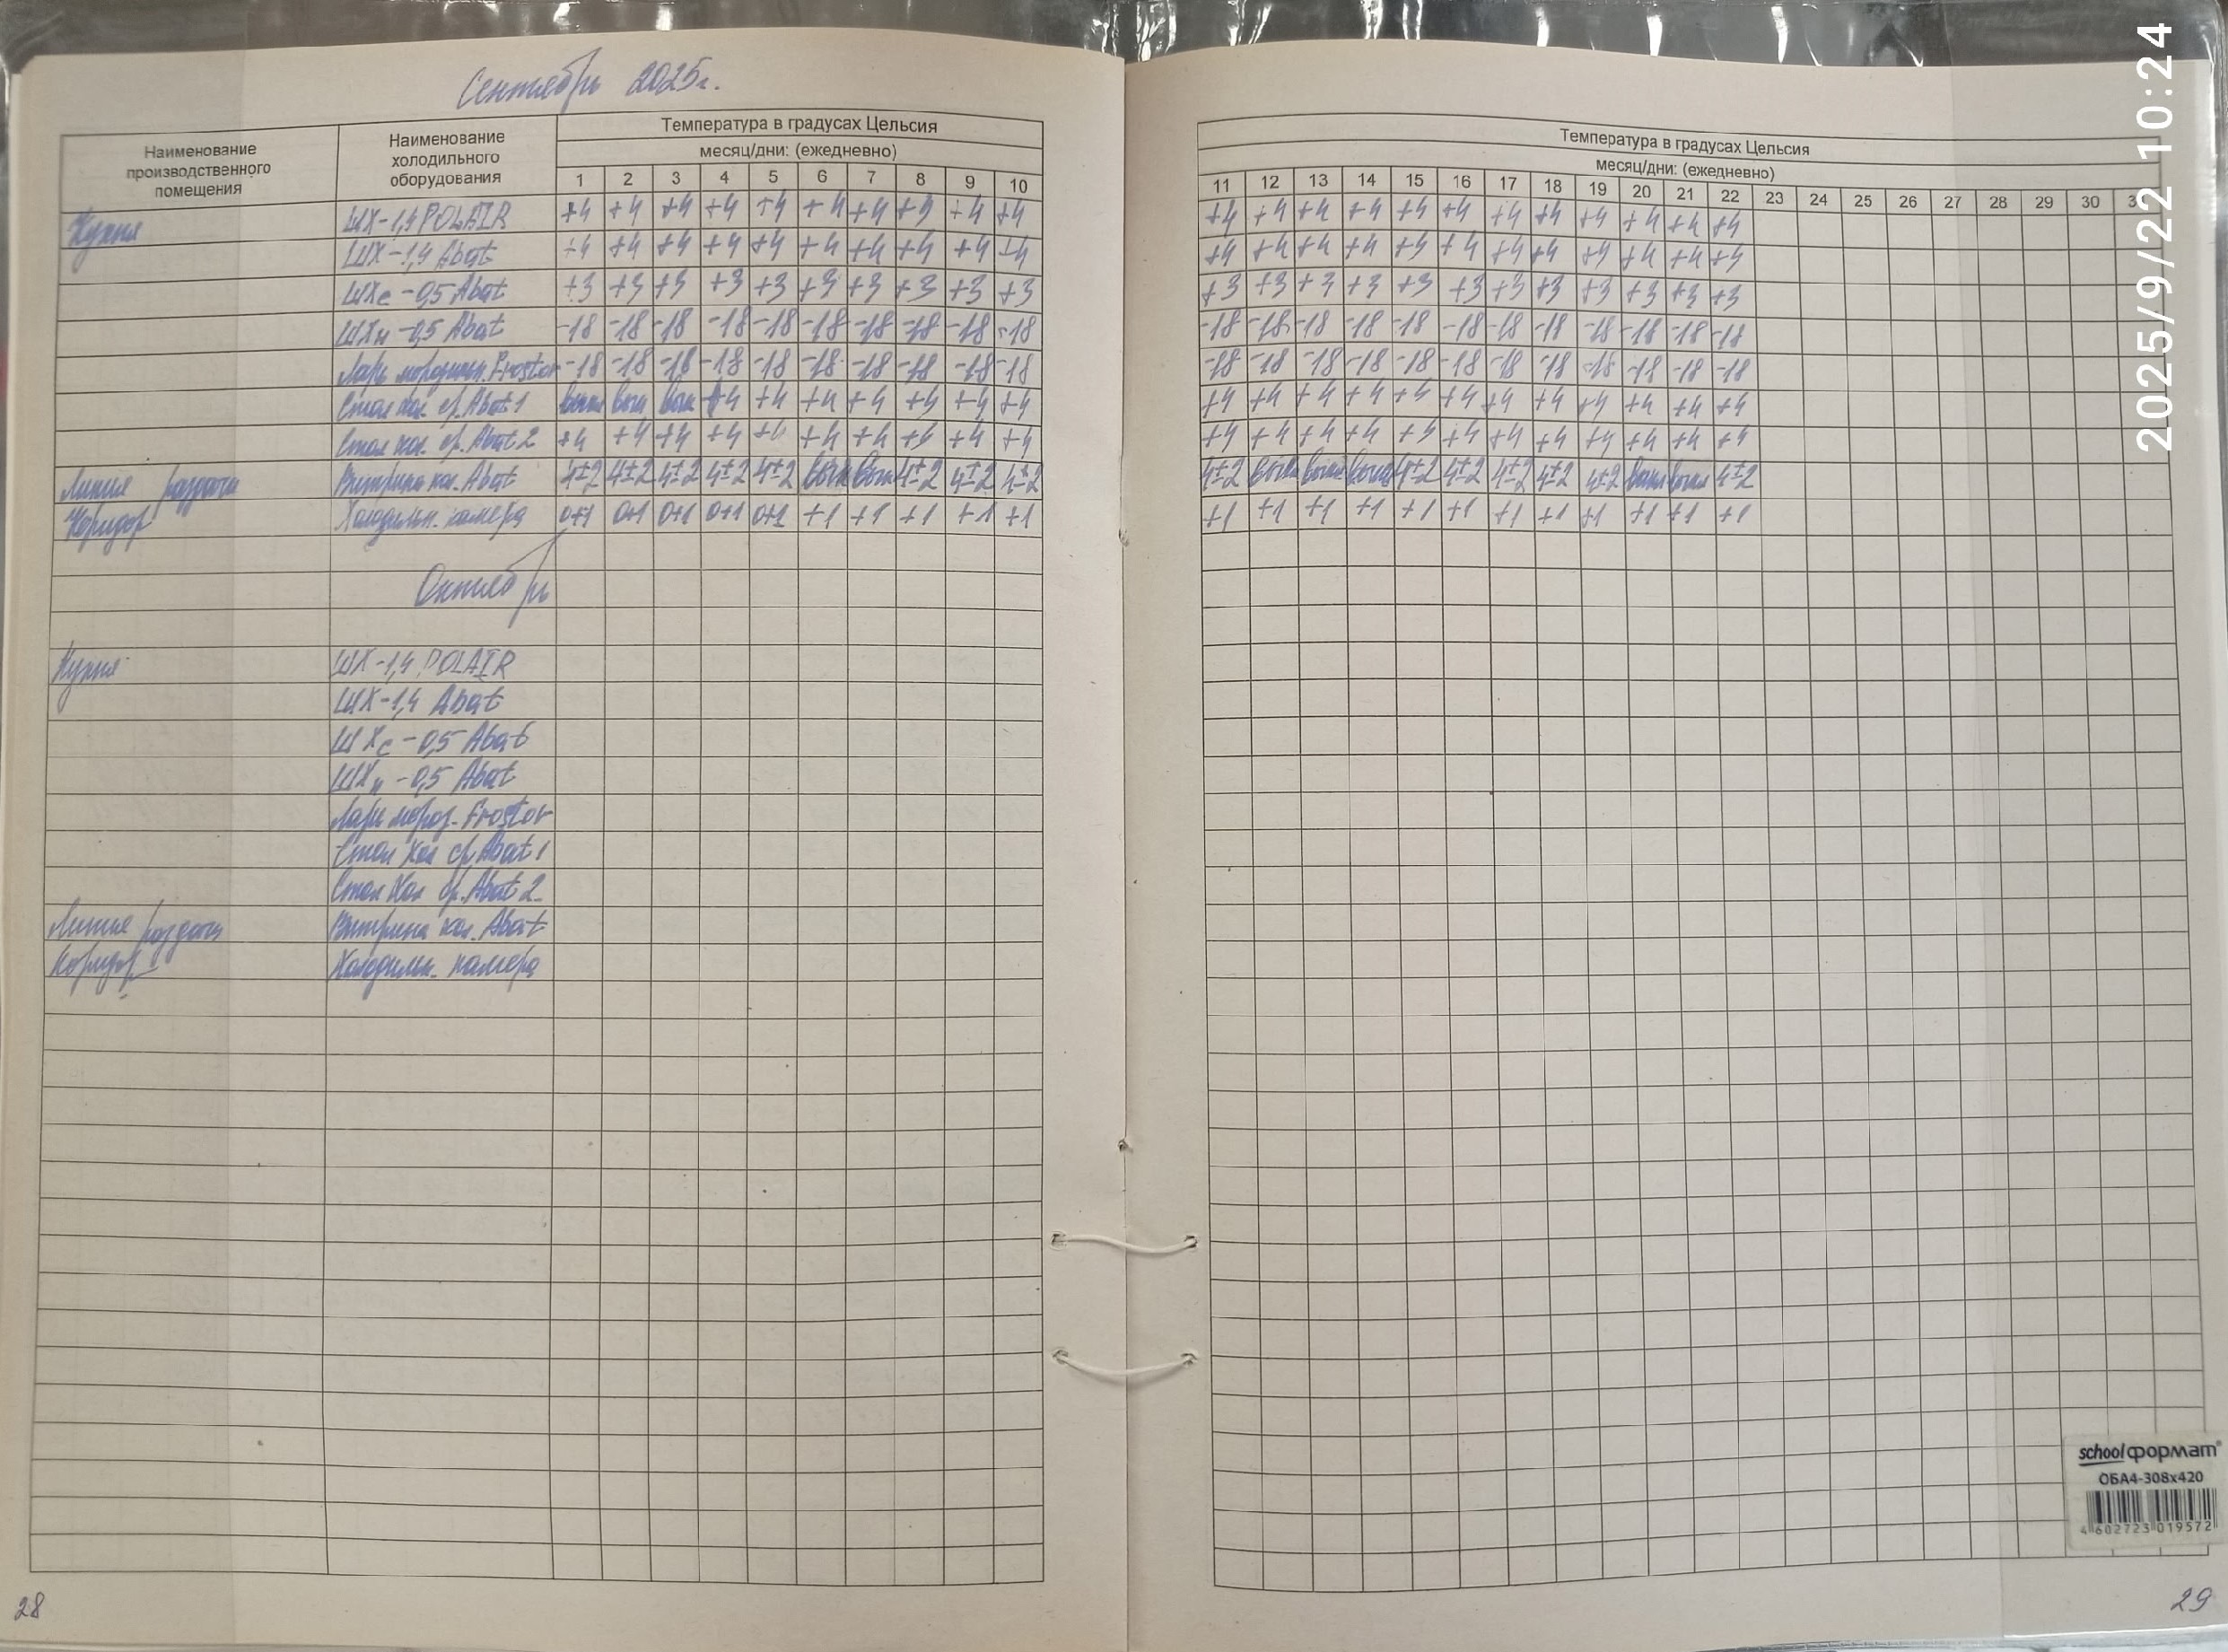 Сентябрь 2025г.
Наименование производственного помещения
Наименование холодильного оборудования
Температура в градусах Цельсия
месяц/дни: (ежедневно)
1 2 3 4 5 6 7 8 9 10
Температура в градусах Цельсия
месяц/дни: (ежедневно)
11 12 13 14 15 16 17 18 19 20 21 22 23 24 25 26 27 28 29 30
Кухня ШХ-1,4 POLAIR +4 +4 +4 +4 +4 +4 +4 +4 +4 +4 +4 +4 +4 +4 +4 +4 +4 +4 +4 +4 +4 +4
ШХ-1,4 Abat +4 +4 +4 +4 +4 +4 +4 +4 +4 +4 +4 +4 +4 +4 +4 +4 +4 +4 +4 +4 +4 +4
ШХс-0,5 Abat +3 +3 +3 +3 +3 +3 +3 +3 +3 +3 +3 +3 +3 +3 +3 +3 +3 +3 +3 +3 +3 +3
ШХн-0,5 Abat -18 -18 -18 -18 -18 -18 -18 -18 -18 -18 -18 -18 -18 -18 -18 -18 -18 -18 -18 -18 -18 -18
Ларь морозильн. Frostor -18 -18 -18 -18 -18 -18 -18 -18 -18 -18 -18 -18 -18 -18 -18 -18 -18 -18 -18 -18 -18 -18
Стол хол. ср. Abat 1 выкл выкл выкл +4 +4 +4 +4 +4 +4 +4 +4 +4 +4 +4 +4 +4 +4 +4 +4 +4 +4 +4
Стол хол. ср. Abat 2 +4 +4 +4 +4 +4 +4 +4 +4 +4 +4 +4 +4 +4 +4 +4 +4 +4 +4 +4 +4 +4 +4
Линия раздачи Витрина хол. Abat 4±2 4±2 4±2 4±2 4±2 выкл выкл 4±2 4±2 4±2 4±2 выкл выкл выкл 4±2 4±2 4±2 4±2 4±2 выкл выкл 4±2
Коридор Холодильн. камера 0+1 0+1 0+1 0+1 0+1 +1 +1 +1 +1 +1 +1 +1 +1 +1 +1 +1 +1 +1 +1 +1 +1 +1
Октябрь
Кухня ШХ-1,4 POLAIR
ШХ-1,4 Abat
ШХс-0,5 Abat
ШХн-0,5 Abat
Ларь мороз. Frostor
Стол хол ср. Abat 1
Стол хол ср. Abat 2
Линия раздачи Витрина хол. Abat
Коридор Холодильн. камера
28
29
2025/9/22 10:24
school формат
ОБА4-308х420
4 602723 019572